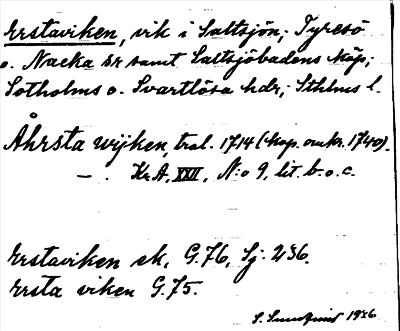 Erstaviken, vik i Saltsjön; Tyresö
o. Nacka sr samt Saltsjöbadens köp;
Sotholms o. Svartlösa hdr; Sthlms l.
Åhrsta wijken, tral. 1714 (kop. omkr. 1740).
— . Kr.A. XXII, N:o 9, lit. b. o. c.
Erstaviken ek, G.76, Sj: 236.
Ersta viken G.75.
S. Sundquist 1936